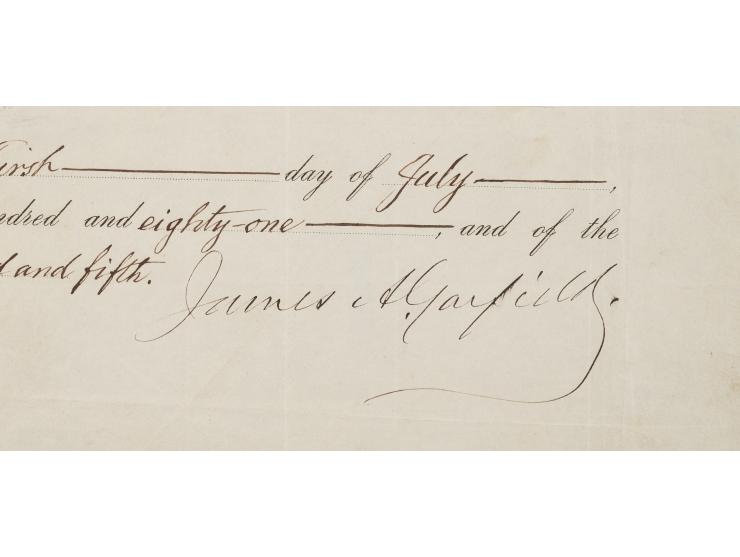 first day of July,
ndred and eighty-one, and of the
d and fifth.
James A. Garfield.